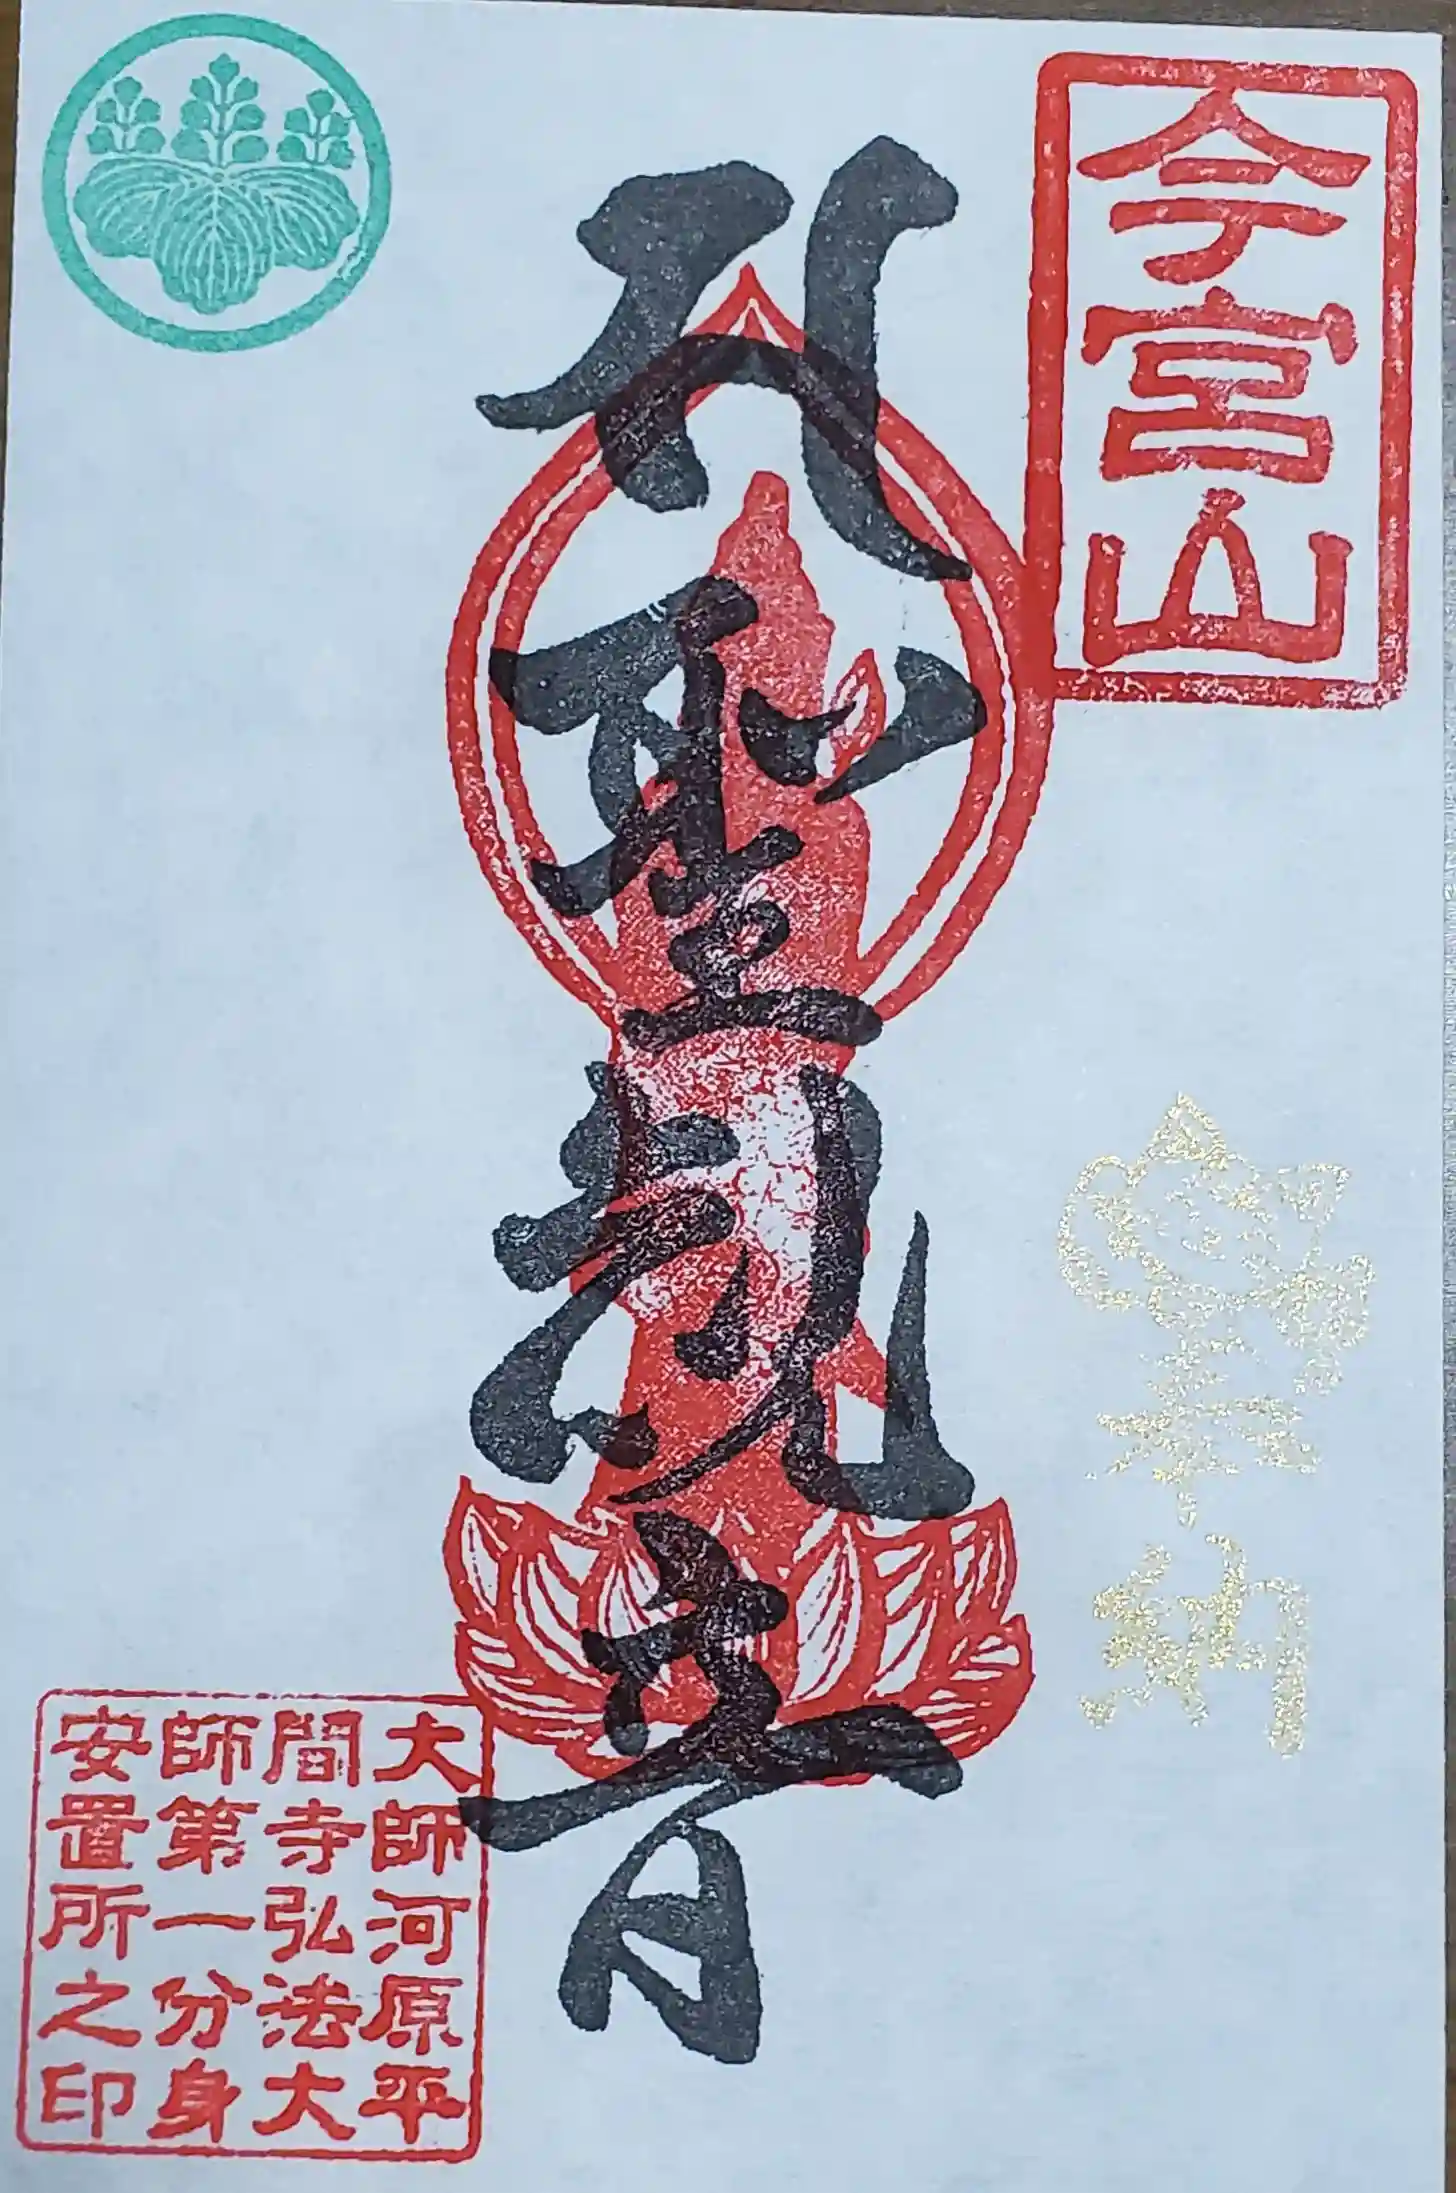 今宮山
奉納
聖観世音
大師河原平
間寺弘法大
師第一分身
安置所之印